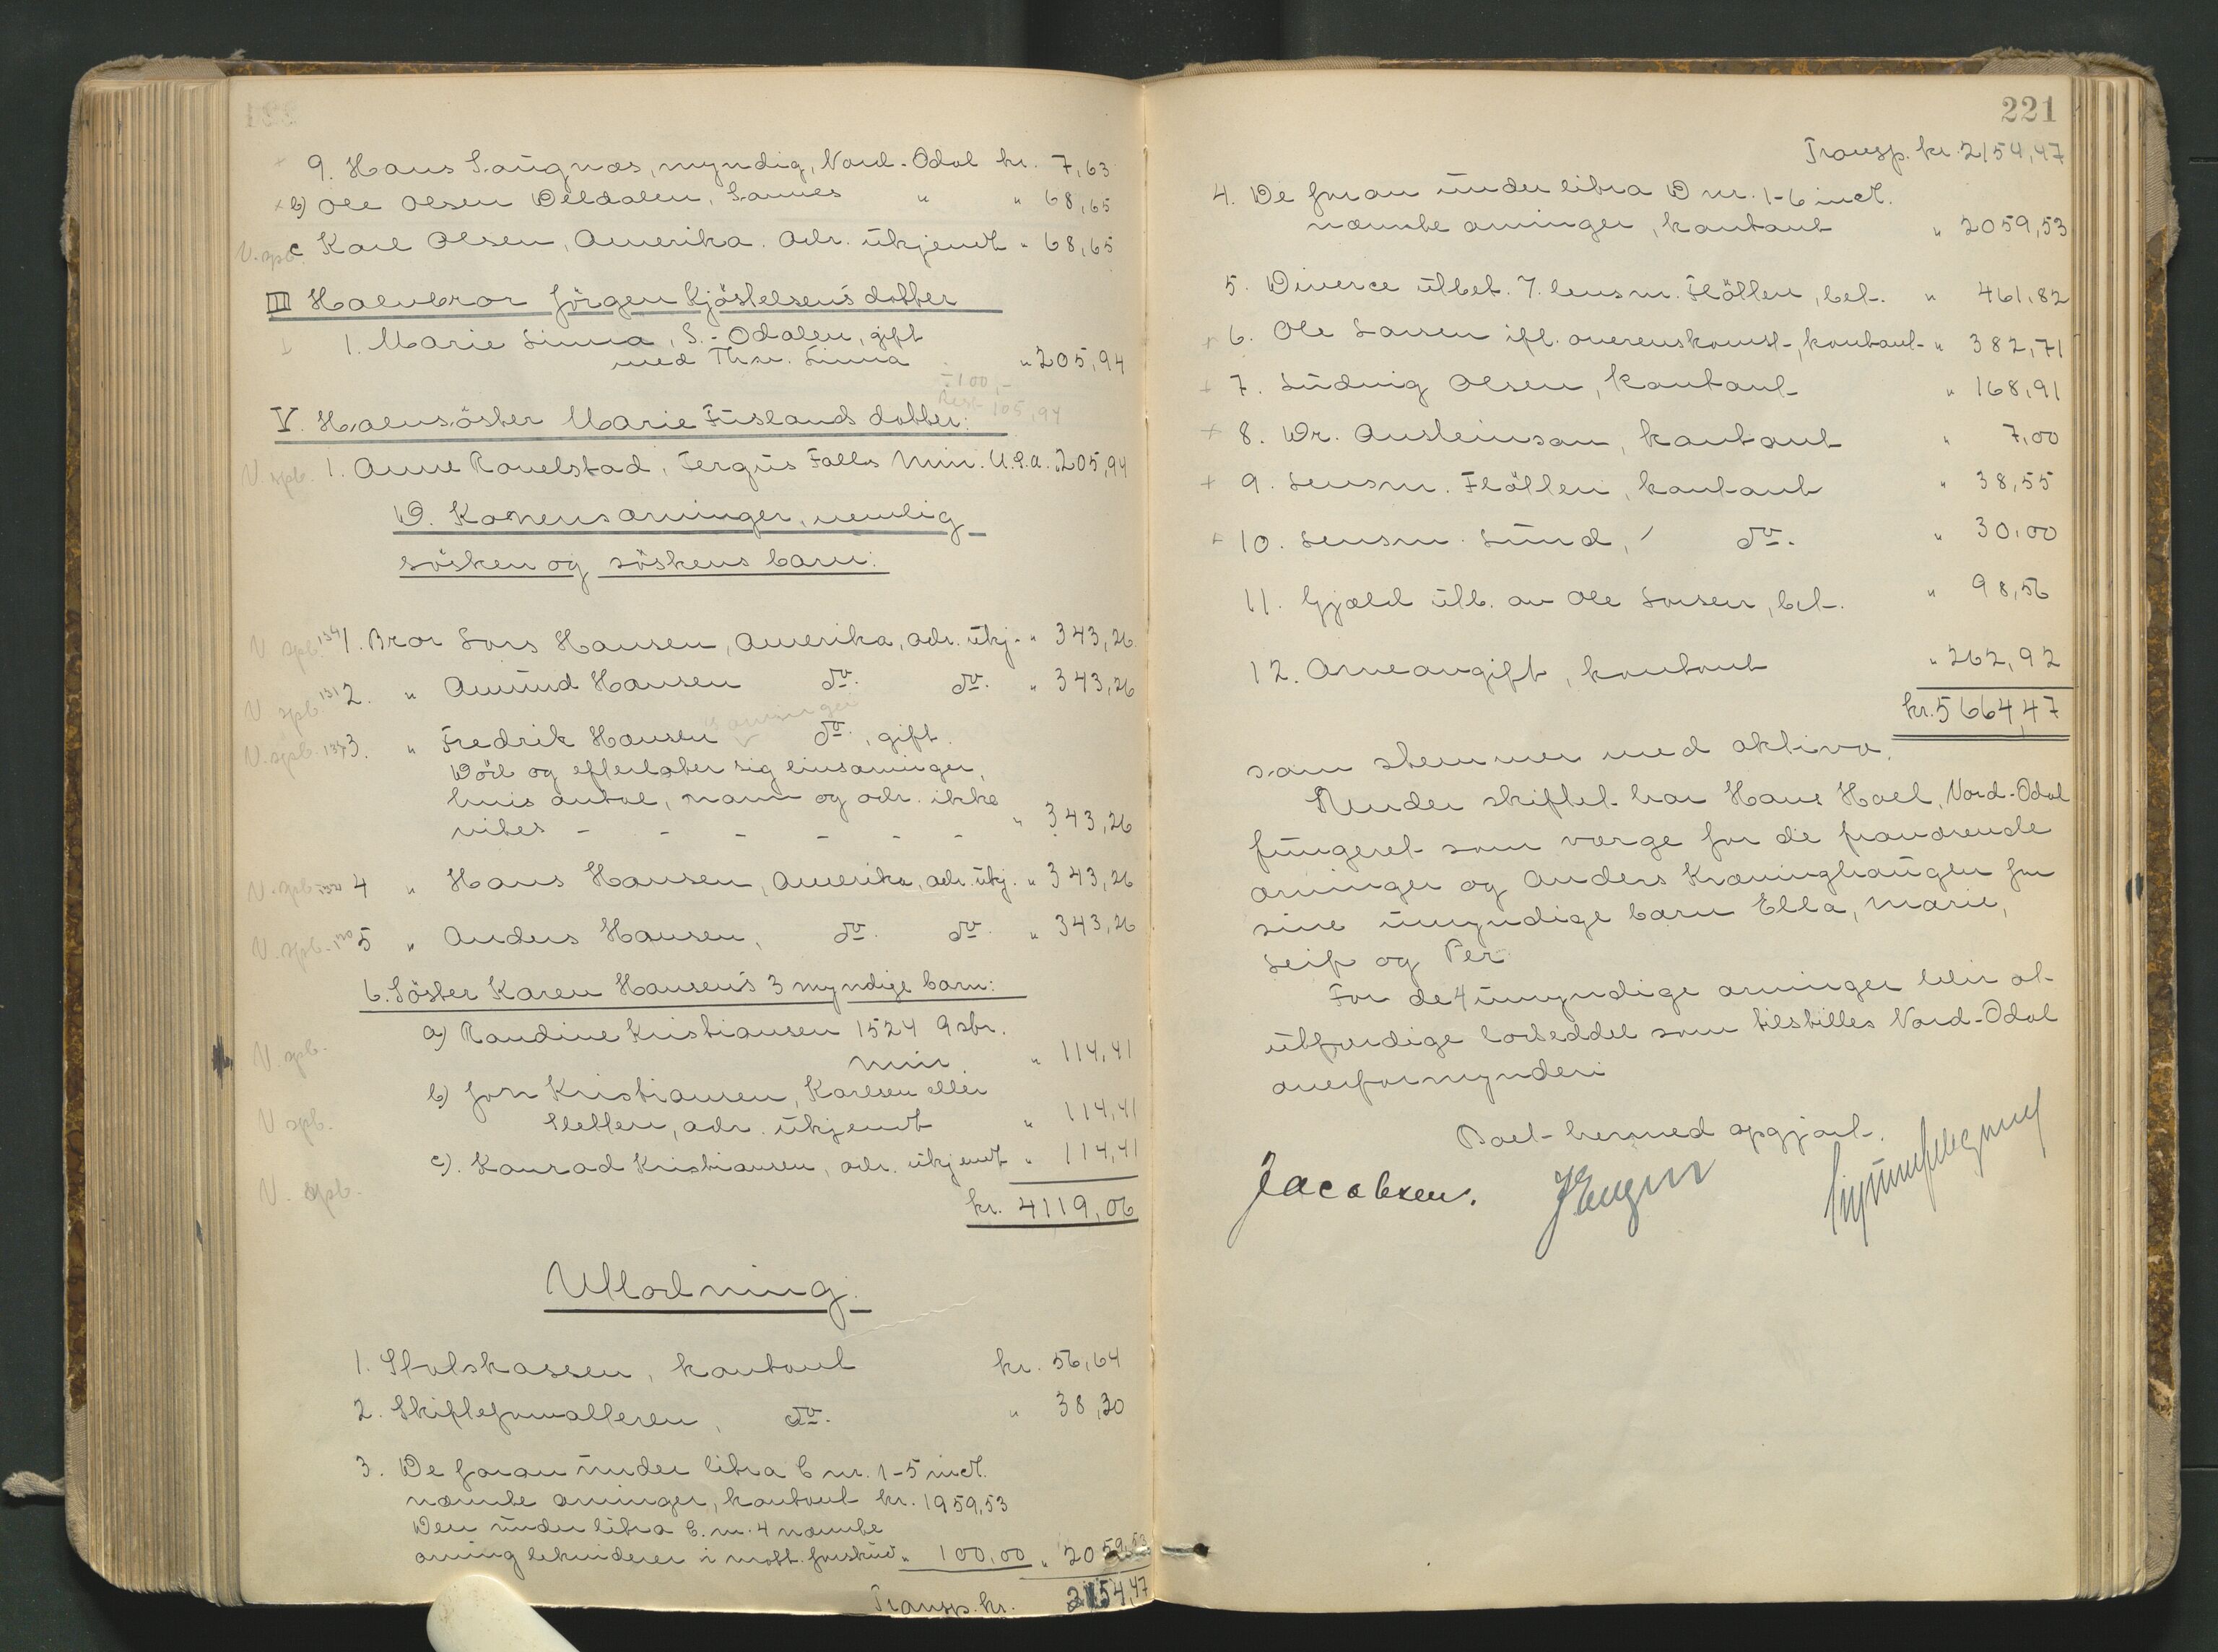 9. Hans Saugnæs, myndig, Nord-Odal kr. 7,63
b) Ole Olsen Deldalen, Sannes " " 68,65
V. spb. c Karl Olsen, Amerika. Adr. ukjendt " 68,65
III Halvbror Jörgen Kjöstelsens datter
1. Marie Linna, S.-Odalen, gift
med Thv. Linna " 205,94
÷ 100,-
Rest 105,94
V. Halvsöster Marie Fuslands datter:
V. spb. 1. Anne Rovelstad, Fergus Falls Min. U.S.A. " 205,94
D. Konens arvinger, nemlig
sösken og söskens barn:
V spb. 1. Bror Lars Hansen, Amerika, adr. ukj. " 343,26
V spb. 2. " Amund Hansen do. do. " 343,26
V. spb. 3. " Fredrik Hansen do., gift.
Död og efterlater sig livsarvinger,
hvis antal, navn og adr. ikke
vites - - - - - - " 343,26
V. spb. 4 " Hans Hansen, Amerika, adr. ukj. " 343,26
V. spb. 5 " Anders Hansen, do. do. " 343,26
6. Söster Karen Hansens 3 myndige barn:
V spb. a) Randine Kristiansen 1524 9 sbr.
Min " 114,41
V spb. b) Jon Kristiansen, Karlsen eller
Sletten, adr. ukjendt " 114,41
V. spb. c). Konrad Kristiansen, adr. ukjendt " 114,41
kr. 4119,06
Utlodning.
1. Statskassen, kontant kr. 56,64
2. Skifteforvalteren, do. " 38,30
3. De foran under litra C nr. 1-5 incl.
nævnte arvinger, kontant kr. 1959,53
Den under litra C. nr. 4 nævnte
arving likviderer i mott. forskud " 100,00 " 2059,53
Transp. kr. 2154,47
221
Transp. kr. 2154,47
4. De foran under litra D nr. 1-6 incl.
nævnte arvinger, kontant " 2059,53
5. Diverce utbet. 7. lensm. Flötten, bet. " 461,82
6. Ole Larsen ifl. overenskomst, kontant " 382,71
7. Ludvig Olsen, kontant " 168,91
8. Dr. Austeinsan, kontant " 7,00
9. Lensm. Flötten, kontant " 38,55
10. Lensm. Lund, do. " 30,00
11. Gjæld utb. av Ole Larsen, bet. " 98,56
12. Arveavgift, kontant " 262,92
kr. 5664,47
som stemmer med aktiva.
Under skiftet har Hans Hoel, Nord-Odal
fungeret som værge for de fraværende
arvinger og Anders Kræminghaugen for
sine umyndige barn Ella, Marie,
Leif og Per
For de 4 umyndige arvinger blir at
utfærdige lodseddel som tilstilles Nord-Odal
overformynderi
Boet hermed opgjort.
Jacobsen.